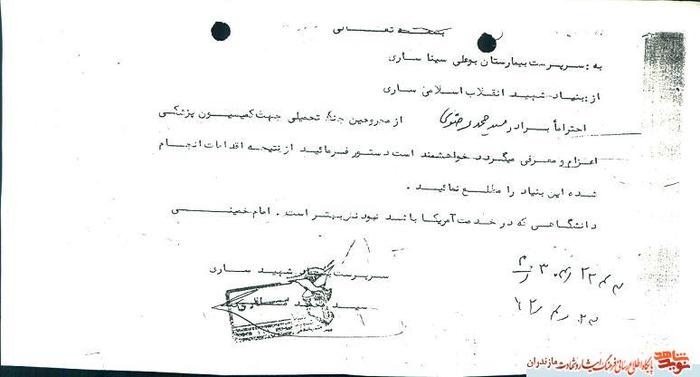 بسمه تعالی
به : سرپرست بیمارستان بوعلی سینا ساری
از : بنیاد شهید انقلاب اسلامی ساری
احتراماً برادر سید محمد از مجروحین جنگ تحمیلی جهت کمیسیون پزشکی
اعزام و معرفی میگردد خواهشمند است دستور فرمائید از نتیجه اقدامات انجام
شده این بنیاد را مطلع نمائید .
دانشگاهی که در خدمت آمریکا باشد نبودنش بهتر است . امام خمینی
سرپرست بنیاد شهید ساری
سید
نوید شاهد
پایگاه اطلاع رسانی فرهنگ ایثار و شهادت مازندران